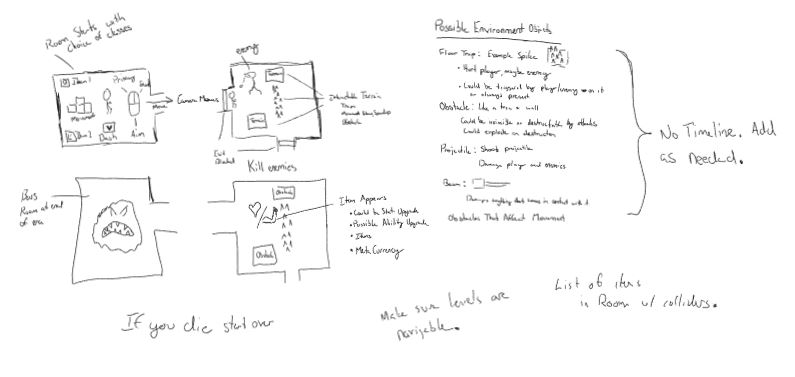 Room Starts with
choice of classes
Item 1
Primary
Movement
Mouse
Dash
Aim
Camera Moves
enemy
Terrain
Terrain
Exit
Blocked
Kill enemies
Boss
Room at end
of era
Obstacle
Obstacle
Item Appears
• Could be Stat Upgrade
• Possible Ability Upgrade
• Items
• Meta Currency
If you die start over
Possible Environment Objects
Floor Trap: Example Spikes
• Hurt player, maybe enemy
• Could be triggered by player/enemy on it
or always present
Obstacle: Like a tree or wall
Could be invincible or destructible by attacks
Could explode on destruction
Projectile: Shoots projectile
Damages player and enemies
Beam:
Damages anything that comes in contact with it
Obstacles That Affect Movement
No Timeline. Add
as needed.
Make sure levels are
navigable.
List of items
in Room w/ colliders.